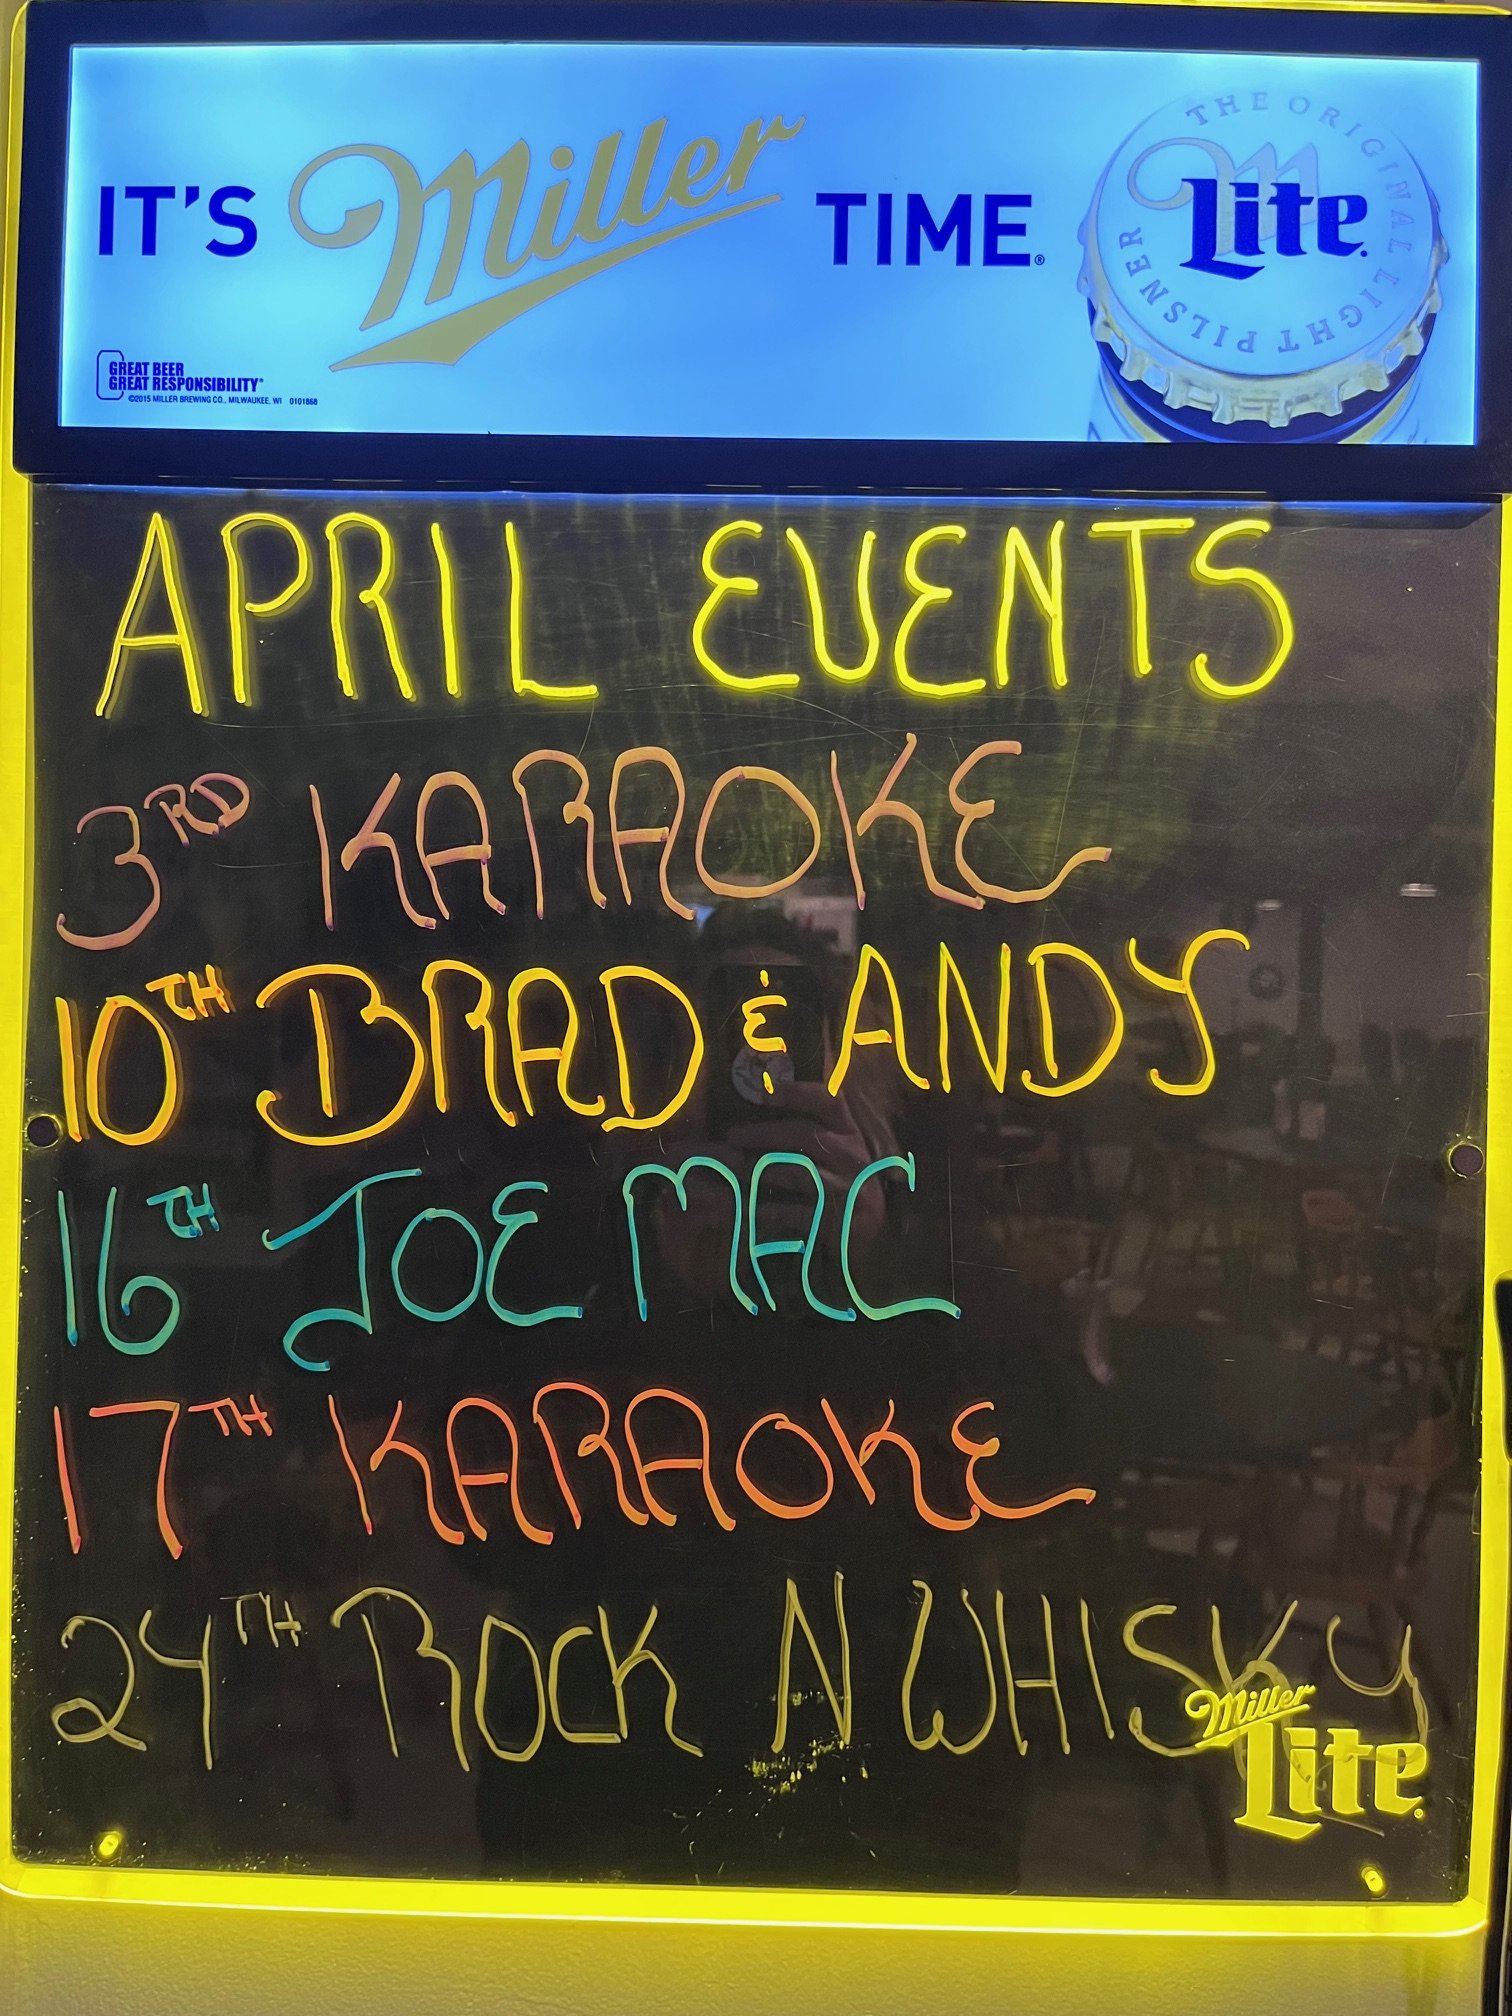 IT'S Miller TIME.®
THE ORIGINAL LIGHT PILSNER
Lite
GREAT BEER
GREAT RESPONSIBILITY®
©2015 MILLER BREWING CO., MILWAUKEE, WI 0101868
APRIL EVENTS
3RD KARAOKE
10TH BRAD & ANDY
16TH JOE MAC
17TH KARAOKE
24TH ROCK N WHISKY
Miller
Lite